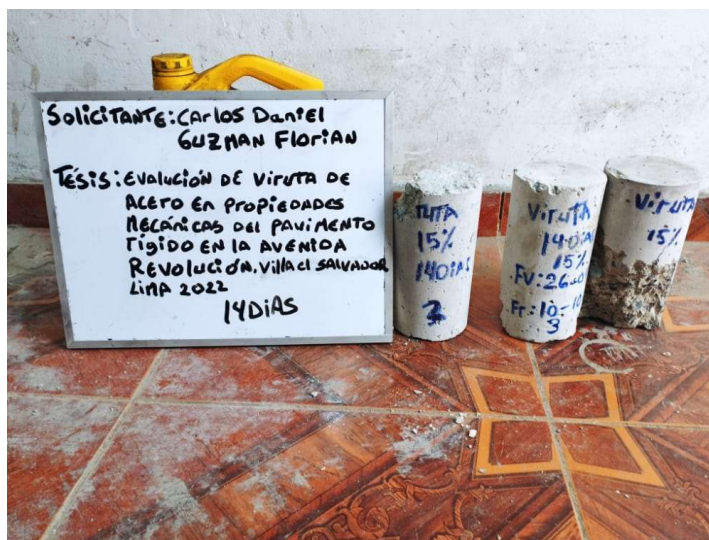 Solicitante: Carlos Daniel
Guzman Florian
Tésis: Evalución de viruta de
acero en propiedades
mecánicas del pavimento
rígido en la avenida
Revolución. Villa el Salvador
Lima 2022
14 Dias
15%
14 Dias
Viruta
14 Dias
15%
Fr: 10-10
3
Viruta
15%